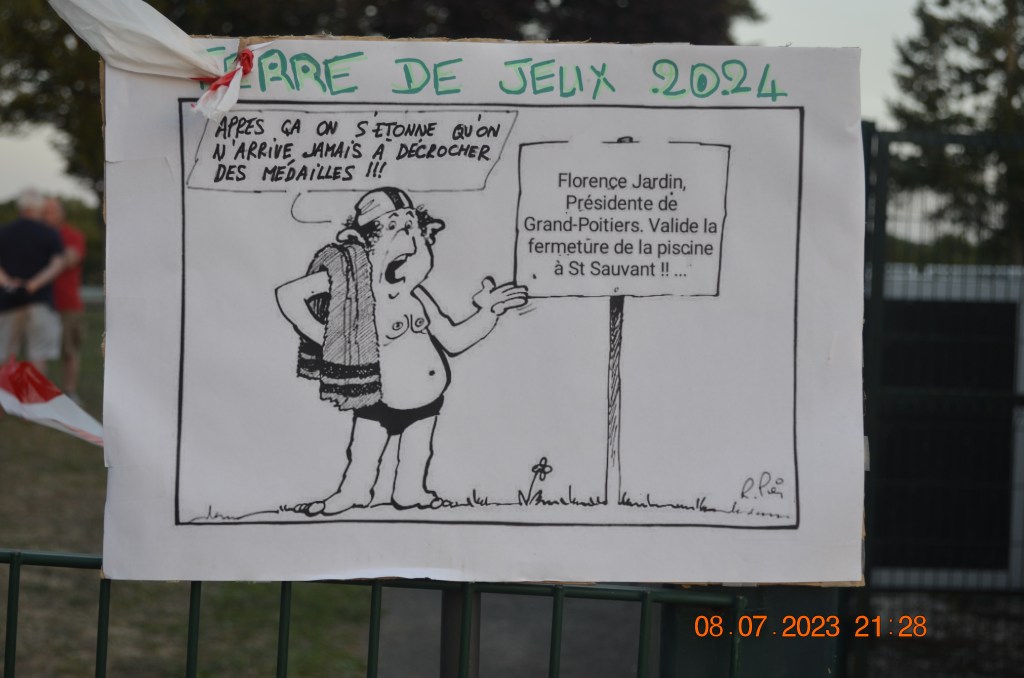 TERRE DE JEUX 2024
APRES ÇA ON S'ÉTONNE QU'ON
N'ARRIVE JAMAIS À DÉCROCHER
DES MÉDAILLES !!!
Florence Jardin,
Présidente de
Grand-Poitiers. Valide la
fermetûre de la piscine
à St Sauvant !! ...
08.07.2023 21:28